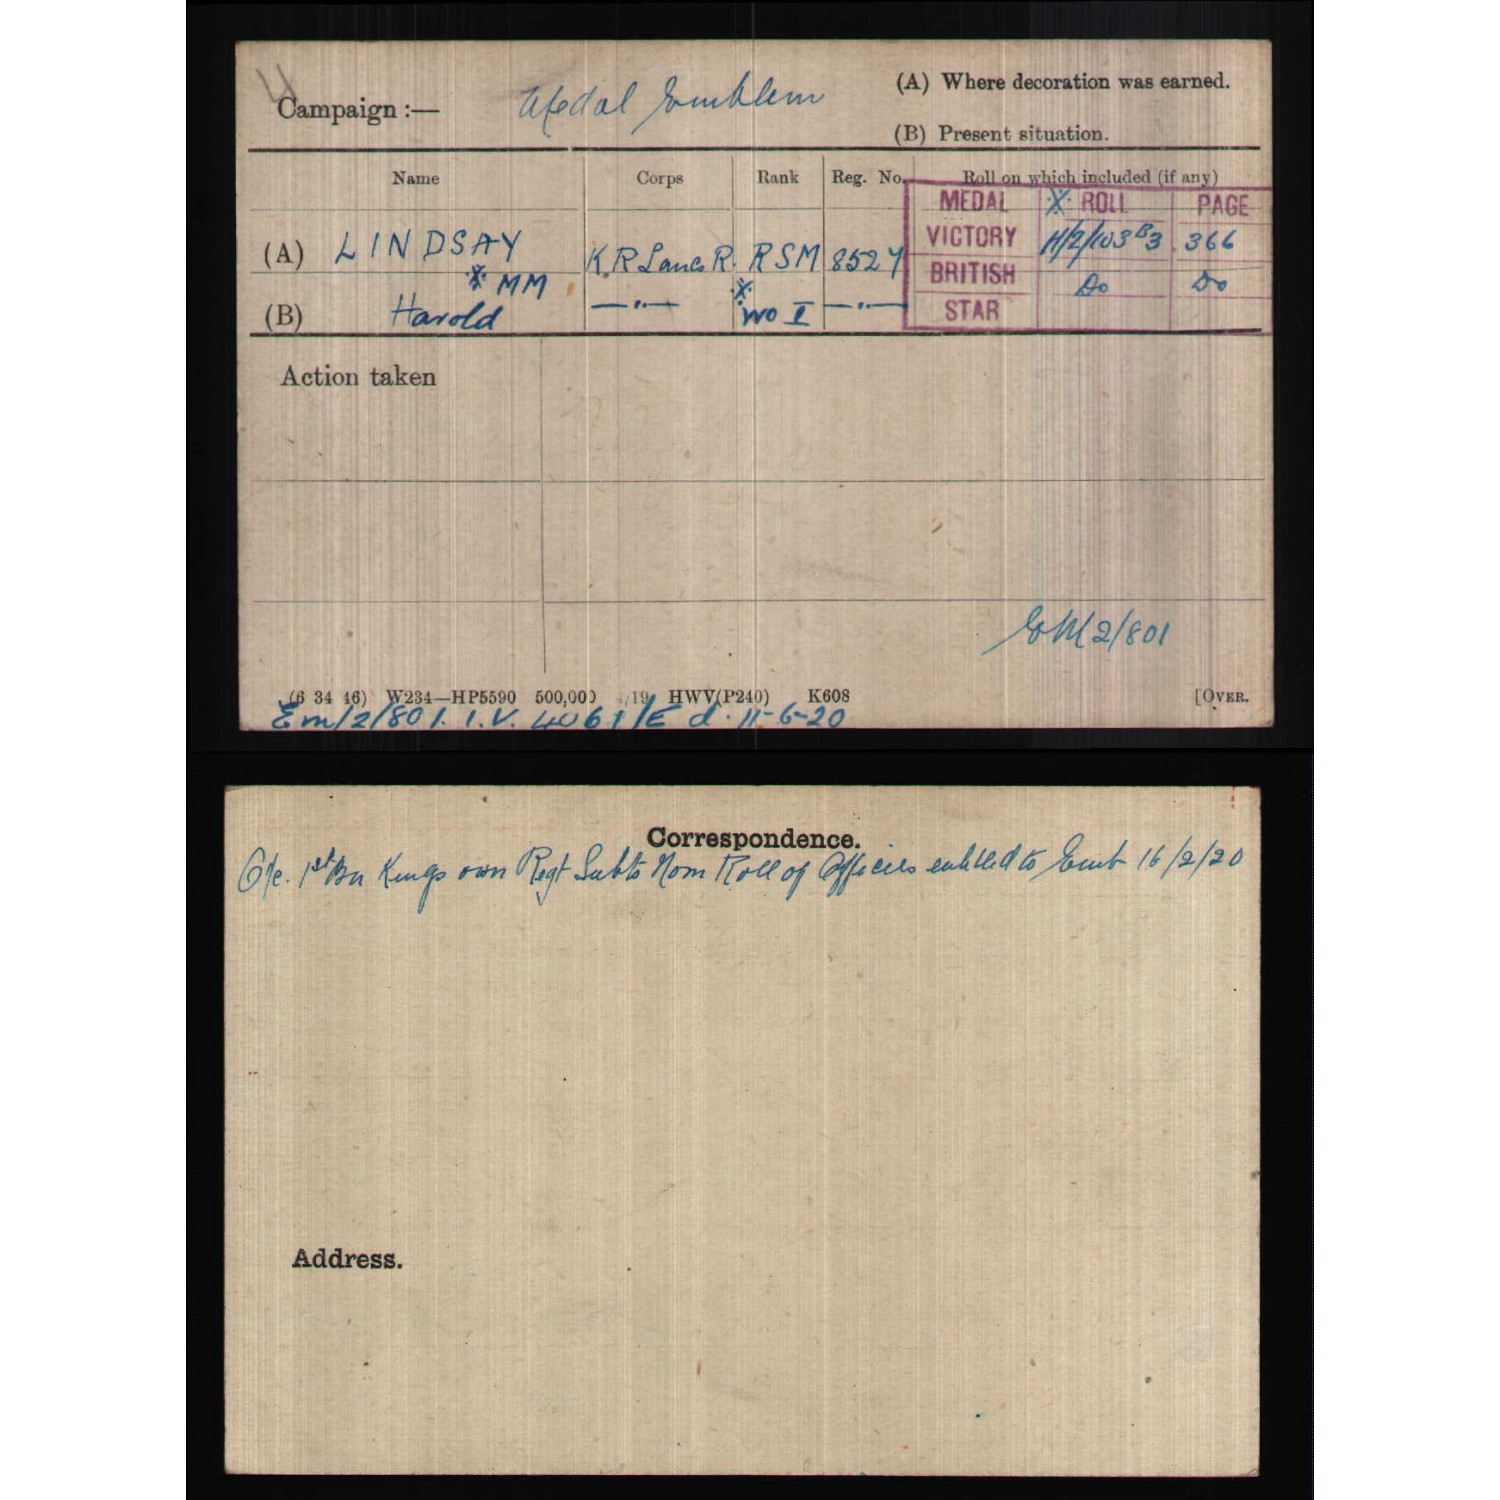 Campaign :— Medal Emblem (A) Where decoration was earned.
(B) Present situation.
Name Corps Rank Reg. No. Roll on which included (if any)
MEDAL X ROLL PAGE
(A) LINDSAY K.R. Lancs R. RSM 8527 VICTORY H/2/103 B3 366
X MM BRITISH Do Do
(B) Harold —"— X WO I —"— STAR
Action taken
EM/2/801
(6 34 46) W234—HP5590 500,000 /19 HWV(P240) K608 [OVER.
Em/2/801. I.V. 4061/E d. 11-6-20
Correspondence.
O/c. 1st Bn Kings own Regt Subts Nom Roll of Officers entitled to Emb 16/2/20
Address.